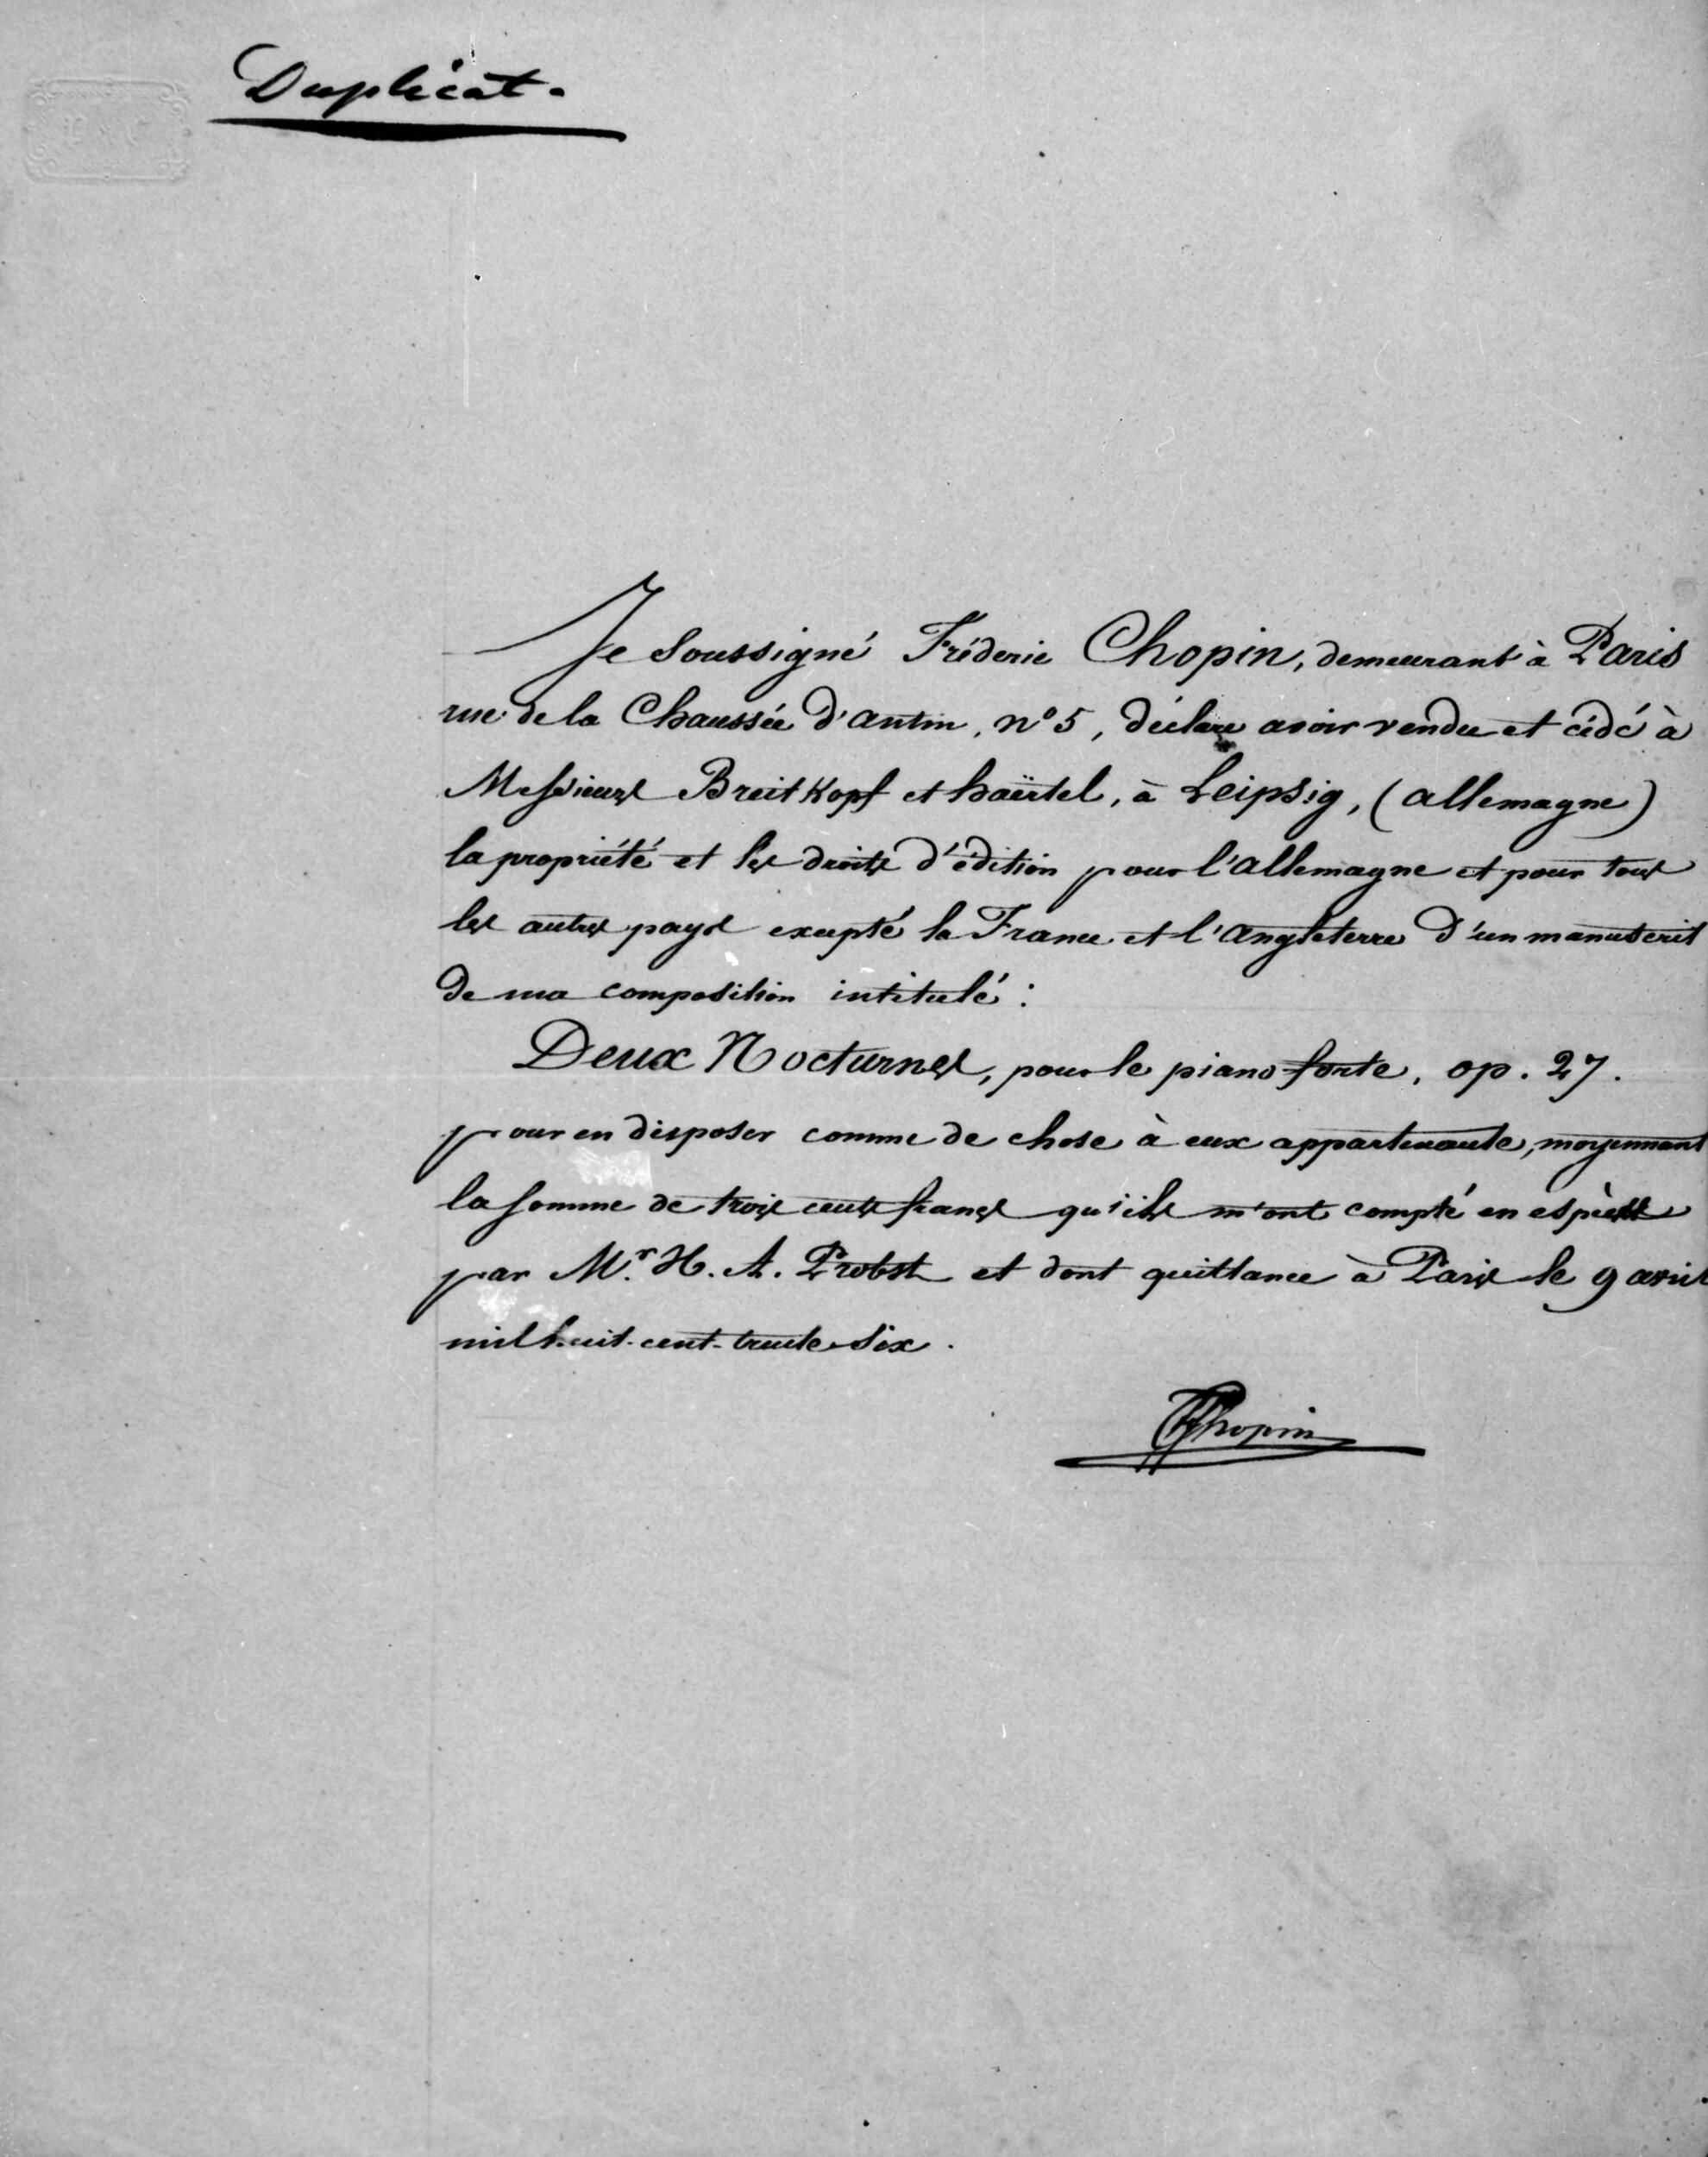 Duplicat.
Je soussigné Fréderic Chopin, demeurant à Paris
rue de la Chaussée d'antin, nº 5, déclare avoir vendu et cédé à
Messieurs Breitkopf et haërtel, à Leipsig, (allemagne)
la propriété et les droits d'édition pour l'allemagne et pour tous
les autres pays excepté la France et l'angleterre d'un manuscrit
de ma composition intitulé :
Deux Nocturnes, pour le piano forte, op. 27.
pour en disposer comme de chose à eux appartenante, moyennant
la somme de trois cents francs qu'ils m'ont compté en espèces
par Mr. H. A. Probst et dont quittance à Paris le 9 avril
mil huit-cent-trente-six.
FChopin